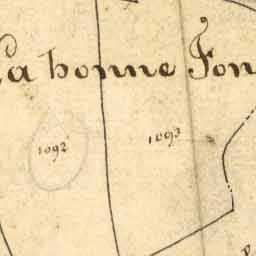 La bonne Fon
1092
1093